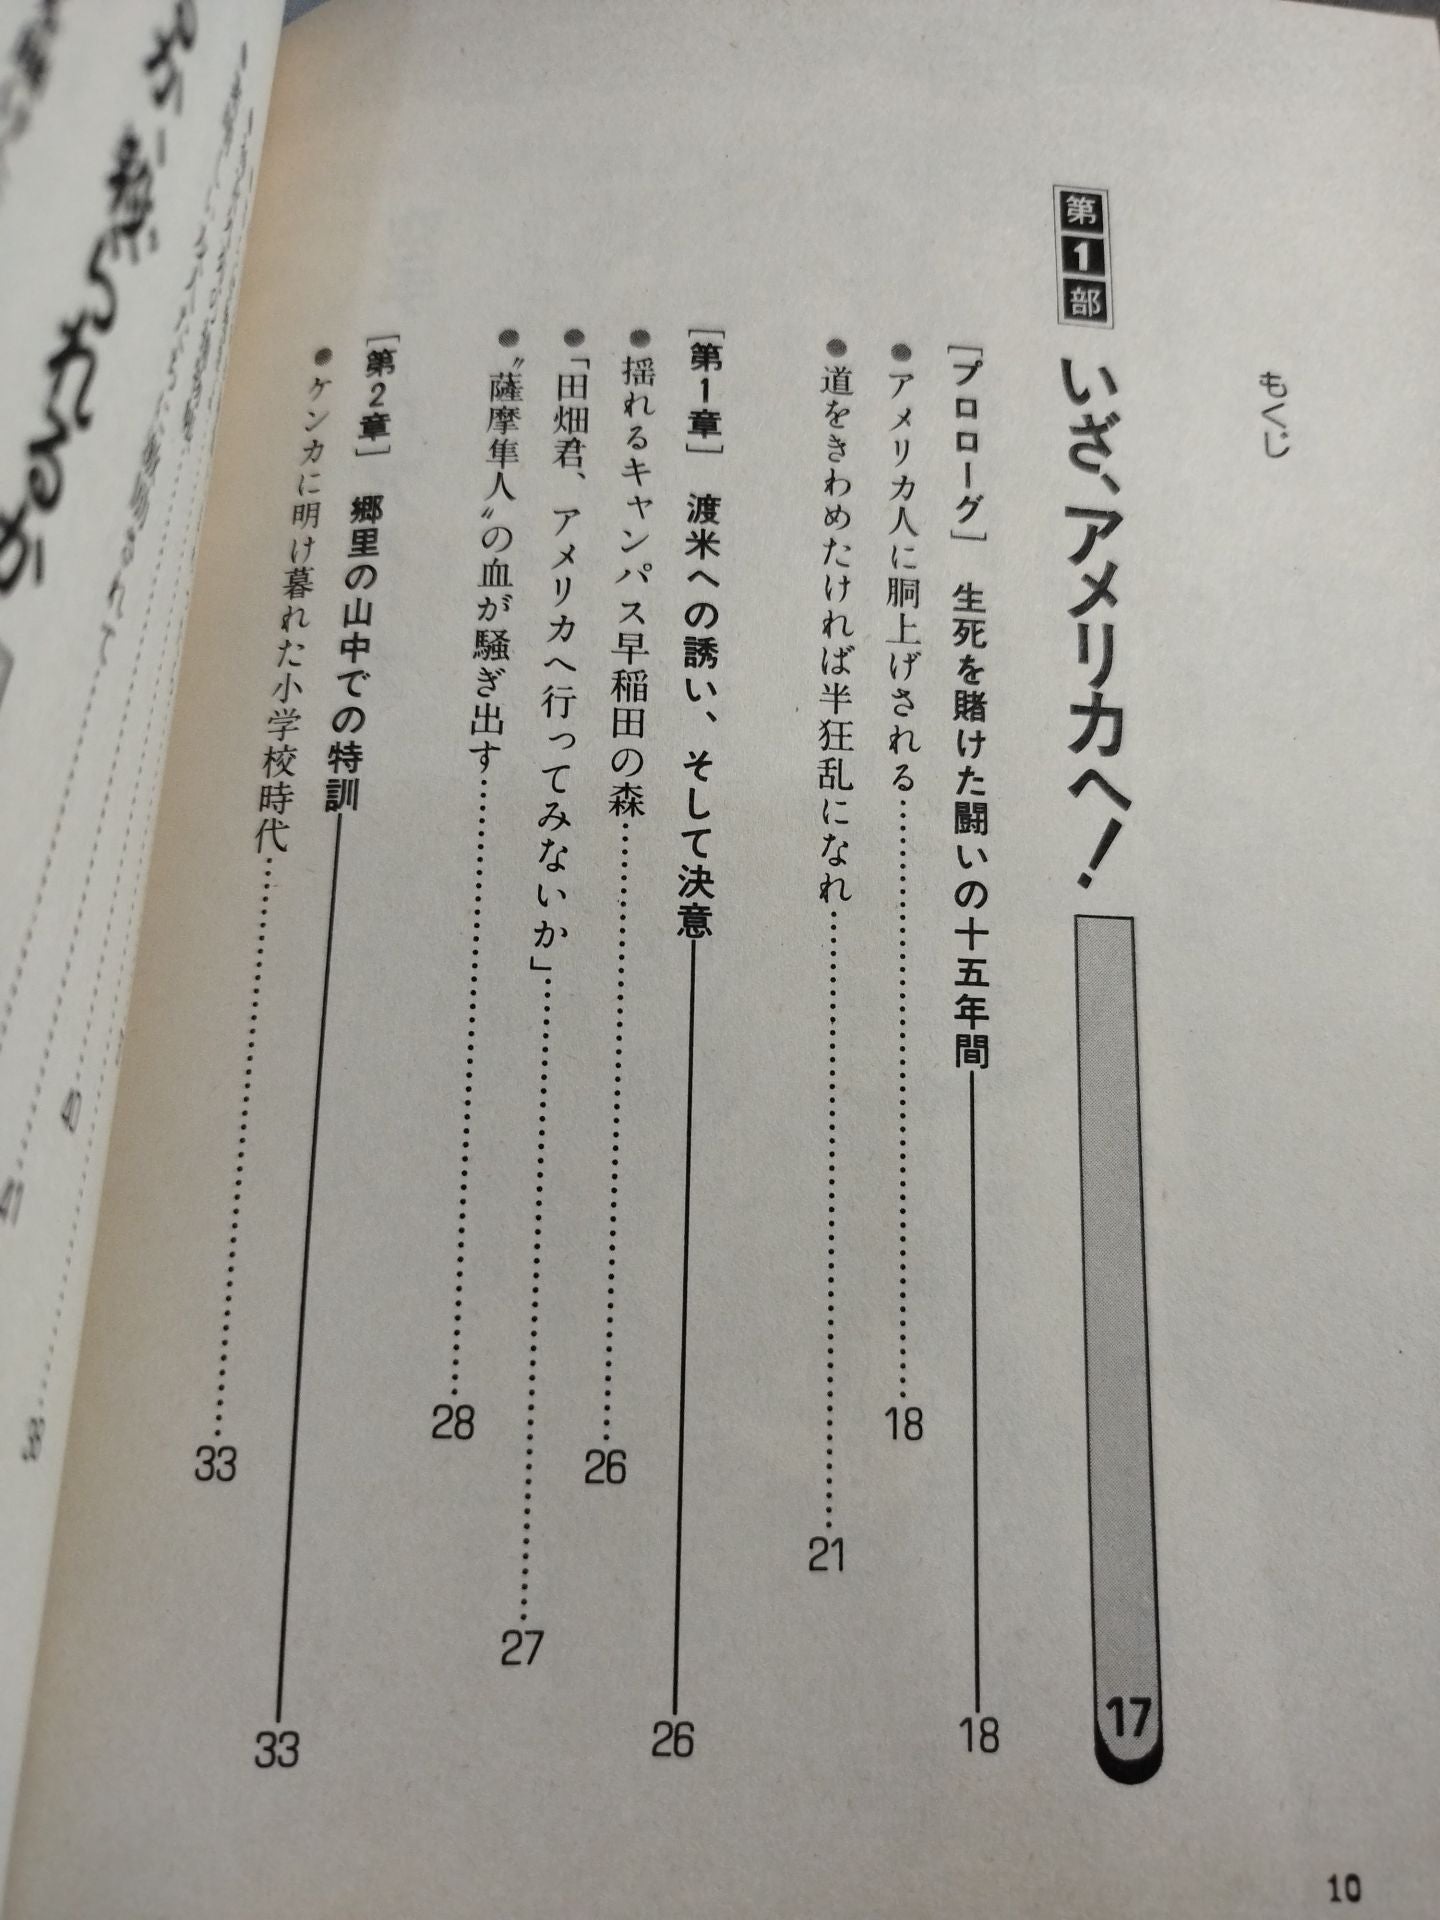 もくじ
第1部 いざ、アメリカへ! 17
[プロローグ] 生死を賭けた闘いの十五年間 18
●アメリカ人に胴上げされる 18
●道をきわめたければ半狂乱になれ 21
[第1章] 渡米への誘い、そして決意 26
●揺れるキャンパス早稲田の森 26
●「田畑君、アメリカへ行ってみないか」 27
●〝薩摩隼人〟の血が騒ぎ出す 28
[第2章] 郷里の山中での特訓 33
●ケンカに明け暮れた小学校時代 33
10
38
41